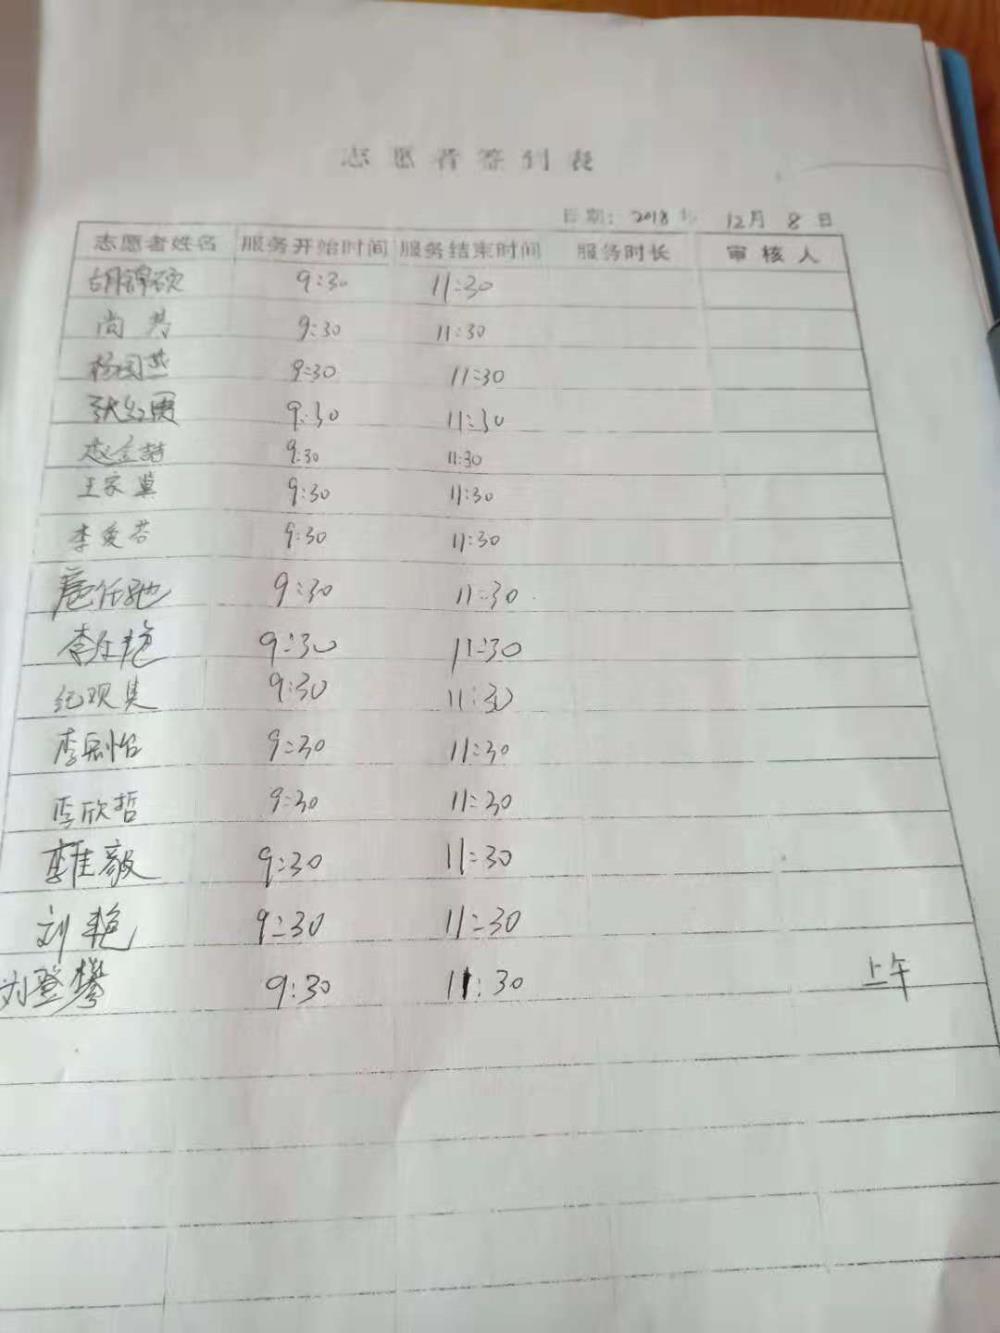 志愿者签到表
日期: 2018年 12月 8日
志愿者姓名 服务开始时间 服务结束时间 服务时长 审核人
胡锦硕 9:30 11:30
尚 9:30 11:30
杨国燕 9:30 11:30
张红霞 9:30 11:30
赵金喆 9:30 11:30
王家 9:30 11:30
李爱芬 9:30 11:30
9:30 11:30
李 艳 9:30 11:30
纪观 9:30 11:30
李 怡 9:30 11:30
李欣哲 9:30 11:30
毅 9:30 11:30
刘艳 9:30 11:30
刘登攀 9:30 11:30 上午